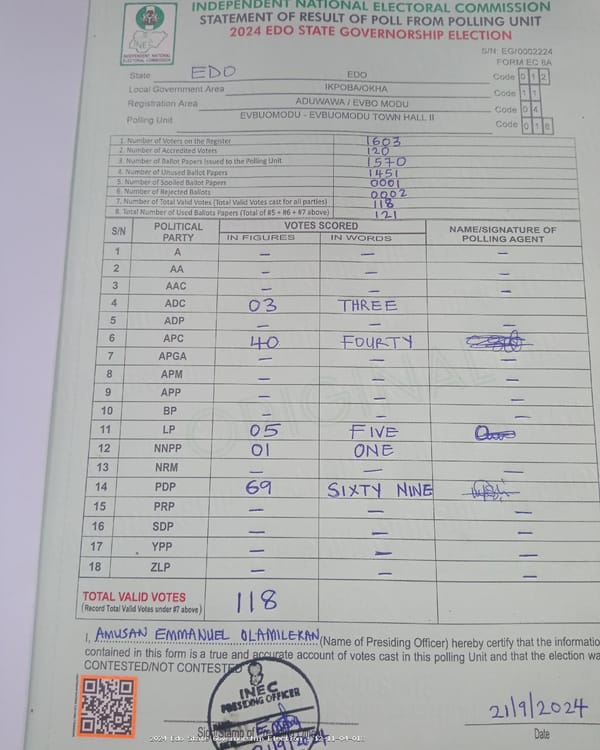 INDEPENDENT NATIONAL ELECTORAL COMMISSION
STATEMENT OF RESULT OF POLL FROM POLLING UNIT
2024 EDO STATE GOVERNORSHIP ELECTION
INEC
INDEPENDENT NATIONAL
ELECTORAL COMMISSION
S/N: EG/0002224
FORM EC 8A
State EDO EDO Code 0 1 2
Local Government Area IKPOBA/OKHA Code 1 1
Registration Area ADUWAWA / EVBO MODU Code 0 4
Polling Unit EVBUOMODU - EVBUOMODU TOWN HALL II Code 0 1 8
1. Number of Voters on the Register 1603
2. Number of Accredited Voters 120
3. Number of Ballot Papers Issued to the Polling Unit 1570
4. Number of Unused Ballot Papers 1451
5. Number of Spoiled Ballot Papers 0001
6. Number of Rejected Ballots 0002
7. Number of Total Valid Votes (Total Valid Votes cast for all parties) 118
8. Total Number of Used Ballots Papers (Total of #5 + #6 + #7 above) 121
S/N POLITICAL PARTY VOTES SCORED NAME/SIGNATURE OF POLLING AGENT
IN FIGURES IN WORDS
1 A – – –
2 AA – – –
3 AAC – – –
4 ADC 03 THREE
5 ADP – – –
6 APC 40 FOURTY
7 APGA – – –
8 APM – – –
9 APP – – –
10 BP – – –
11 LP 05 FIVE
12 NNPP 01 ONE
13 NRM – – –
14 PDP 69 SIXTY NINE
15 PRP – – –
16 SDP – – –
17 YPP – – –
18 ZLP – – –
ORIGINAL
TOTAL VALID VOTES 118
(Record Total Valid Votes under #7 above)
I, AMUSAN EMMANUEL OLAMILEKAN (Name of Presiding Officer) hereby certify that the informatio
contained in this form is a true and accurate account of votes cast in this polling Unit and that the election wa
CONTESTED/NOT CONTESTED
INEC
PRESIDING OFFICER
21/9/2024
21/9/2024
Date